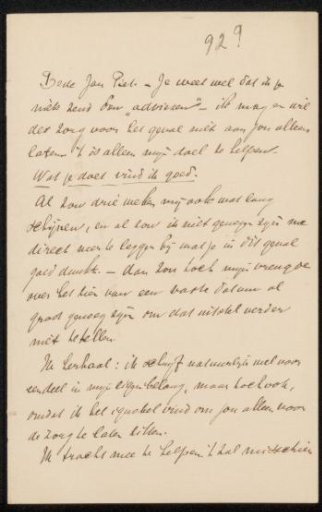 92?
Beste Jan Piet. – Je weet wel dat ik je
niets zend dan "adviezen" – ik mag en wil
der zorg voor het geval niet aan jou alleen
laten. 't is alleen mijn doel te helpen.
Wat je doet vind ik goed.
Al zou drie weken mij ook wat lang
schijnen, en al zou ik niet genegen zijn me
direct neer te leggen bij wat je in dit geval
goed dunkt. – dan zou toch mijn vreugde
over het zien van een vaste datum al
groot genoeg zijn om dat uitstel verder
niet te tellen.
Ik herhaal: ik schrijf natuurlijk wel voor
een deel in mijn eigen belang, maar toch ook,
omdat ik het onnobel vind om jou alleen voor
de zorg te laten zitten.
Ik tracht mee te helpen. 't zal misschien